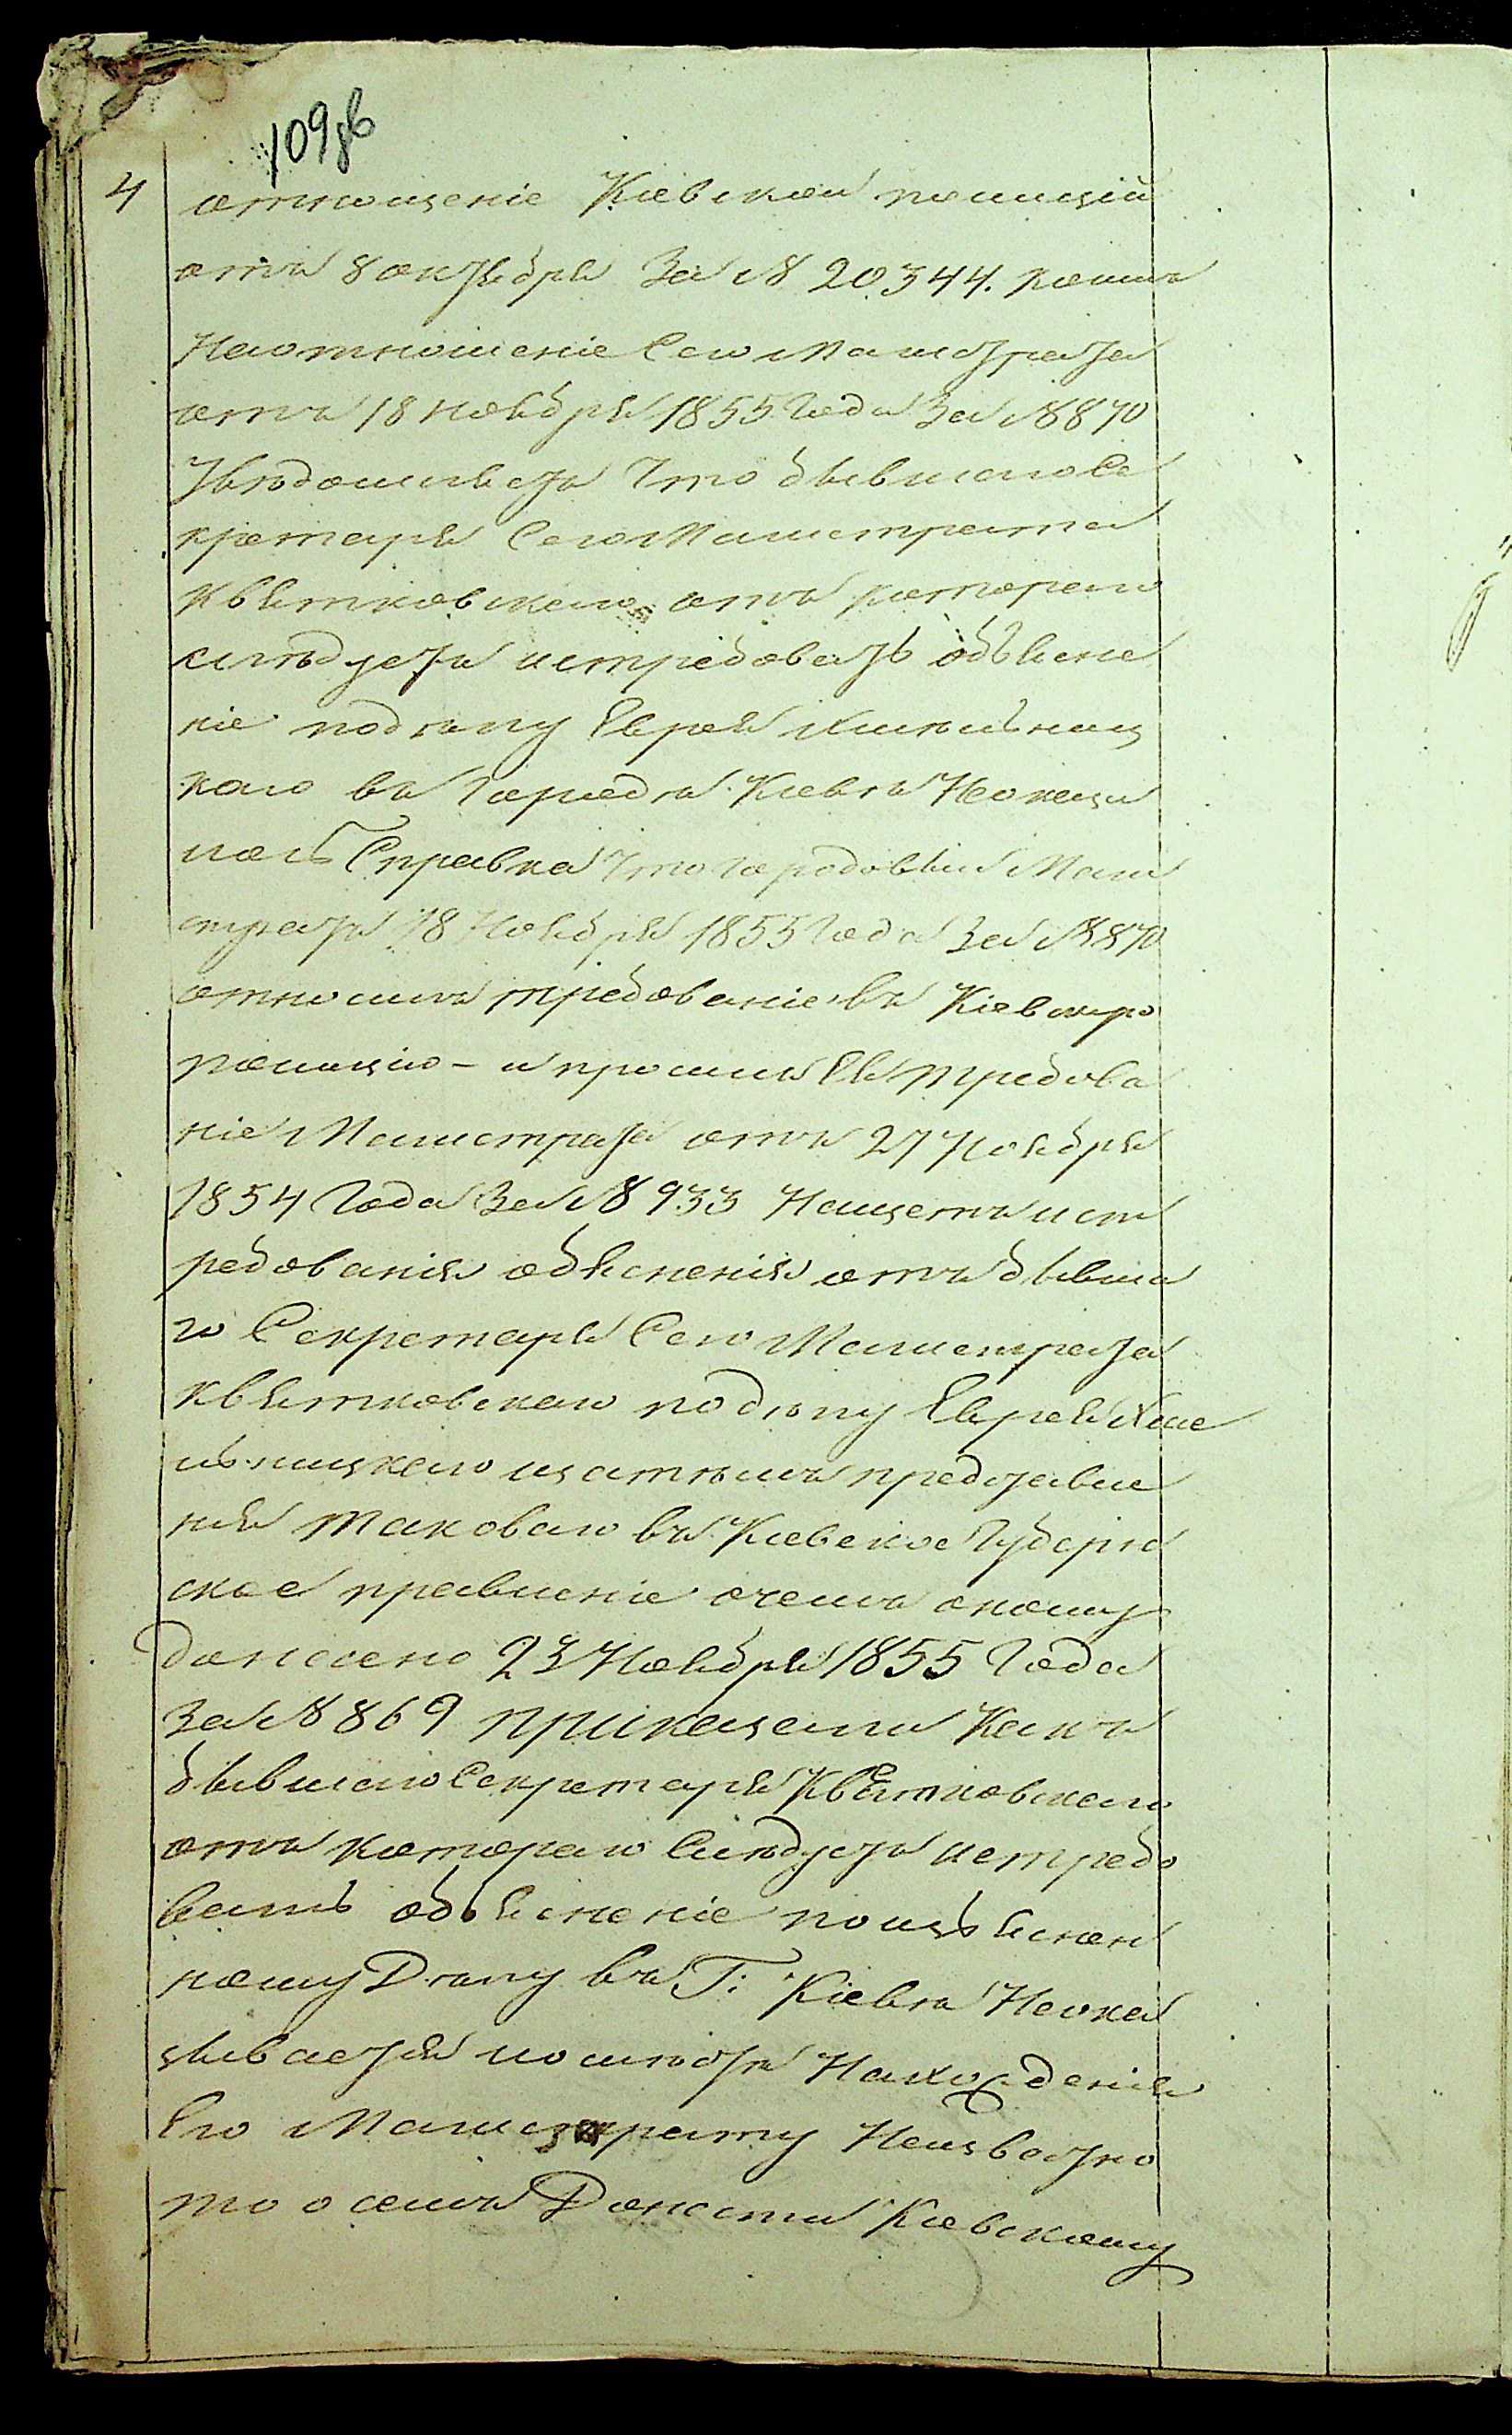 109 об
4 отношеніе Кіевской полиціи
отъ 8 октября За № 20344. коимъ
На отношеніе Сего Магистрата
отъ 18 ноября 1855 Года За № 870
Уведомляетъ Что бывшаго Се
кретаря Сего Магистрата
Квятковскаго отъ котораго
следуетъ истребовать объясне
ніе подѣлу Еврея Хмельниц
каго въ Городѣ Кіевѣ Неоказа
лось Справка Что городовый Маги
стратъ 18 Ноября 1855 Года За № 870
относилъ требованіе въ Кіевскую
полицію – и просилъ Ея требова
ніе Магистрата отъ 27 Ноября
1854 Года За № 933 Насчетъ ист
ребованія объясненія отъ бывша
го Секретаря Сего Магистрата
Квятковскаго подѣлу Еврея Хме
льницкаго изатѣмъ представле
нія таковаго въ Кіевское Губерн
ское правленіе очемъ оному
донесено 23 Ноября 1855 Года
за № 869 Приказали Какъ
бывшаго Секретаря Квятковскаго
отъ котораго Слѣдуетъ истребо
вать объясненіе поизъяснен
ному Дѣлу въ Г: Кіевѣ Неока
зывается иомѣстѣ Нахожденія
Его Магистрату Неизвестно
то о семъ Донести Кіевскому